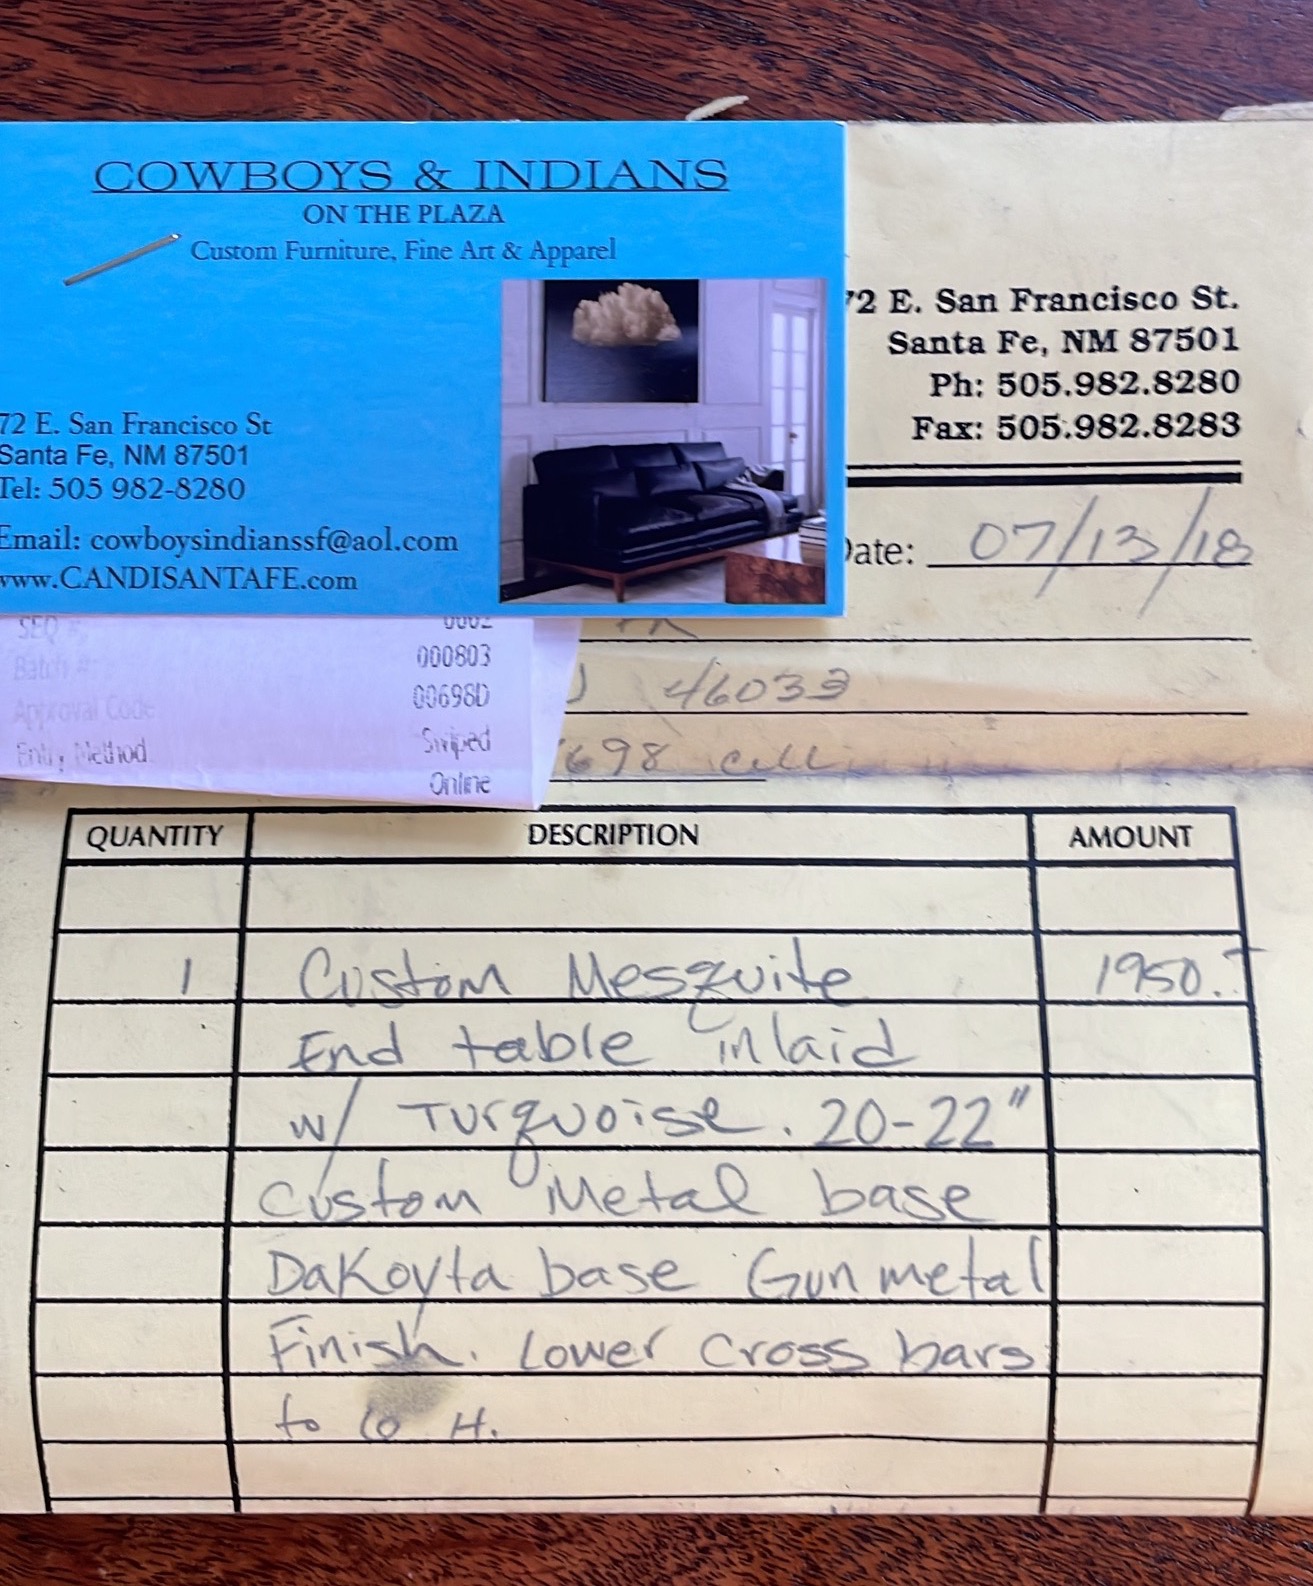 COWBOYS & INDIANS
ON THE PLAZA
Custom Furniture, Fine Art & Apparel
72 E. San Francisco St
Santa Fe, NM 87501
Tel: 505 982-8280
Email: cowboysindianssf@aol.com
www.CANDISANTAFE.com
72 E. San Francisco St.
Santa Fe, NM 87501
Ph: 505.982.8280
Fax: 505.982.8283
Date: 07/13/18
SEQ #: 0002
Batch #: 000803
Approval Code 00698D
Entry Method Swiped
Online
46033
698 cell
QUANTITY DESCRIPTION AMOUNT
1 Custom Mesquite 1950.-
End table inlaid
w/ Turquoise. 20-22"
Custom Metal base
DaKoyta base Gunmetal
Finish. Lower Cross bars
to H.